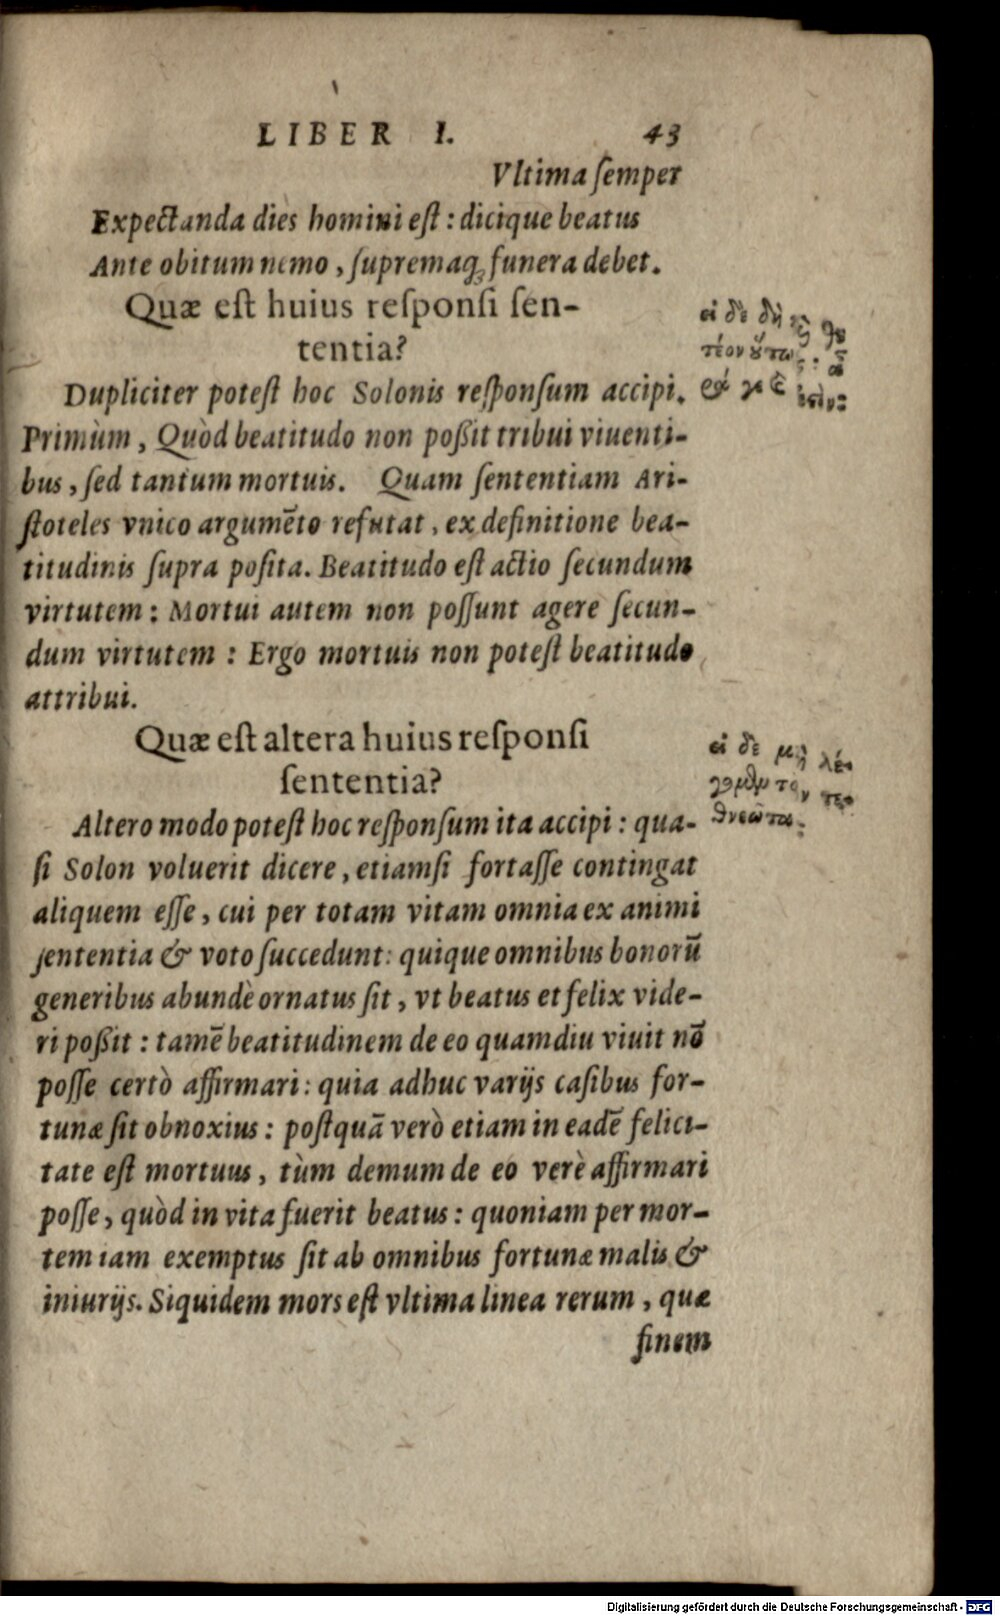 LIBER I. 43
Vltima ſemper
Expectanda dies homini eſt : dicique beatus
Ante obitum nemo , ſupremaq́; funera debet.
Quæ eſt huius reſponſi ſen-
tentia?
Dupliciter poteſt hoc Solonis reſponſum accipi.
Primùm , Quòd beatitudo non poßit tribui viuenti-
bus , ſed tantum mortuis. Quam ſententiam Ari-
ſtoteles vnico argumẽto refutat , ex definitione bea-
titudinis ſupra poſita. Beatitudo eſt actio ſecundum
virtutem : Mortui autem non poſſunt agere ſecun-
dum virtutem : Ergo mortuis non poteſt beatitudo
attribui.
εἰ δὲ δὴ
Quæ eſt altera huius reſponſi
ſententia?
Altero modo poteſt hoc reſponſum ita accipi : qua-
ſi Solon voluerit dicere , etiamſi fortaſſe contingat
aliquem eſſe , cui per totam vitam omnia ex animi
ſententia & voto ſuccedunt : quique omnibus bonorũ
generibus abundè ornatus ſit , vt beatus et felix vide-
ri poßit : tamẽ beatitudinem de eo quamdiu viuit nõ
poſſe certò affirmari : quia adhuc varijs caſibus for-
tunæ ſit obnoxius : poſtquã verò etiam in eadẽ felici-
tate eſt mortuus , tùm demum de eo verè affirmari
poſſe , quòd in vita fuerit beatus : quoniam per mor-
tem iam exemptus ſit ab omnibus fortunæ malis &
iniurijs. Siquidem mors eſt vltima linea rerum , quæ
finem
εἰ δὲ μὴ λέ-
γομεν τὸν τε-
θνεῶτα
Digitalisierung gefördert durch die Deutsche Forschungsgemeinschaft - DFG